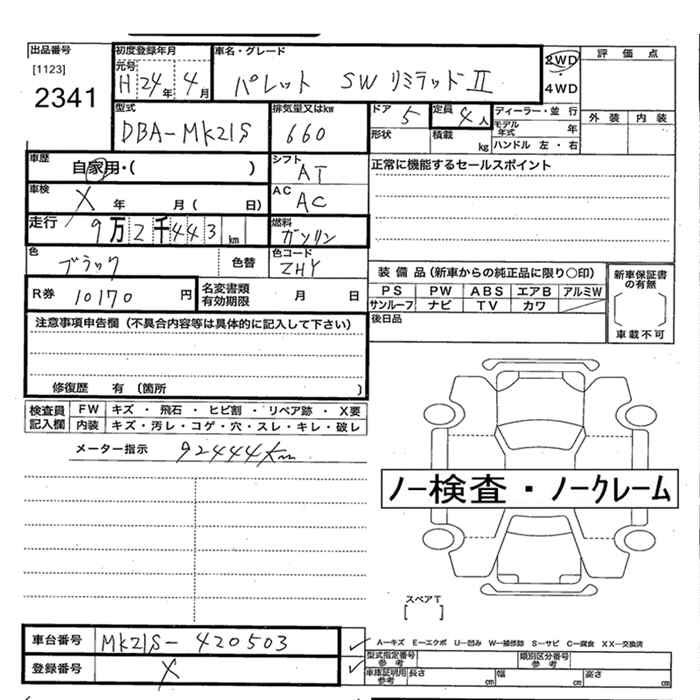 出品番号 初度登録年月 車名・グレード 評価点
[1123] 元号 2WD
2341 H 24年 4月 パレット SW リミテッドII 4WD
型式 排気量又はkw ドア 5 定員 4人 ディーラー・並行 外装 内装
DBA-MK21S 660 形状 積載 kg モデル年式 年
ハンドル 左・右
車歴 自家用・( ) シフト AT 正常に機能するセールスポイント
車検 X 年 月( 日) AC AC
走行 9万2千443km 燃料 ガソリン
色 ブラック 色替 色コード ZHY
装備品(新車からの純正品に限り○印) 新車保証書の有無
R券 10170円 名変書類有効期限 月 日 PS PW ABS エアB アルミW
サンルーフ ナビ TV カワ
注意事項申告欄(不具合内容等は具体的に記入して下さい) 後日品 車載不可
修復歴 有(箇所 )
検査員 FW キズ・飛石・ヒビ割・リペア跡・X要
記入欄 内装 キズ・汚レ・コゲ・穴・スレ・キレ・破レ
メーター指示 92444km
ノー検査・ノークレーム
スペアT
[ ]
車台番号 MK21S-420503 A-キズ E-エクボ U-凹み W-補修跡 S-サビ C-腐食 XX-交換済
型式指定番号 参考 類別区分番号 参考
登録番号 X 車庫証明用 参考 長さ cm 幅 cm 高さ cm